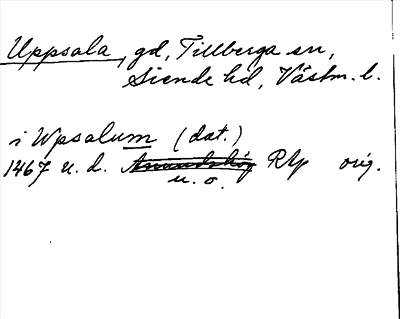 Uppsala, gd, Tillberga sn,
Siende hd, Västm. l.
i Wpsalum (dat.)
1467 u. d. RAp orig.
u. o.